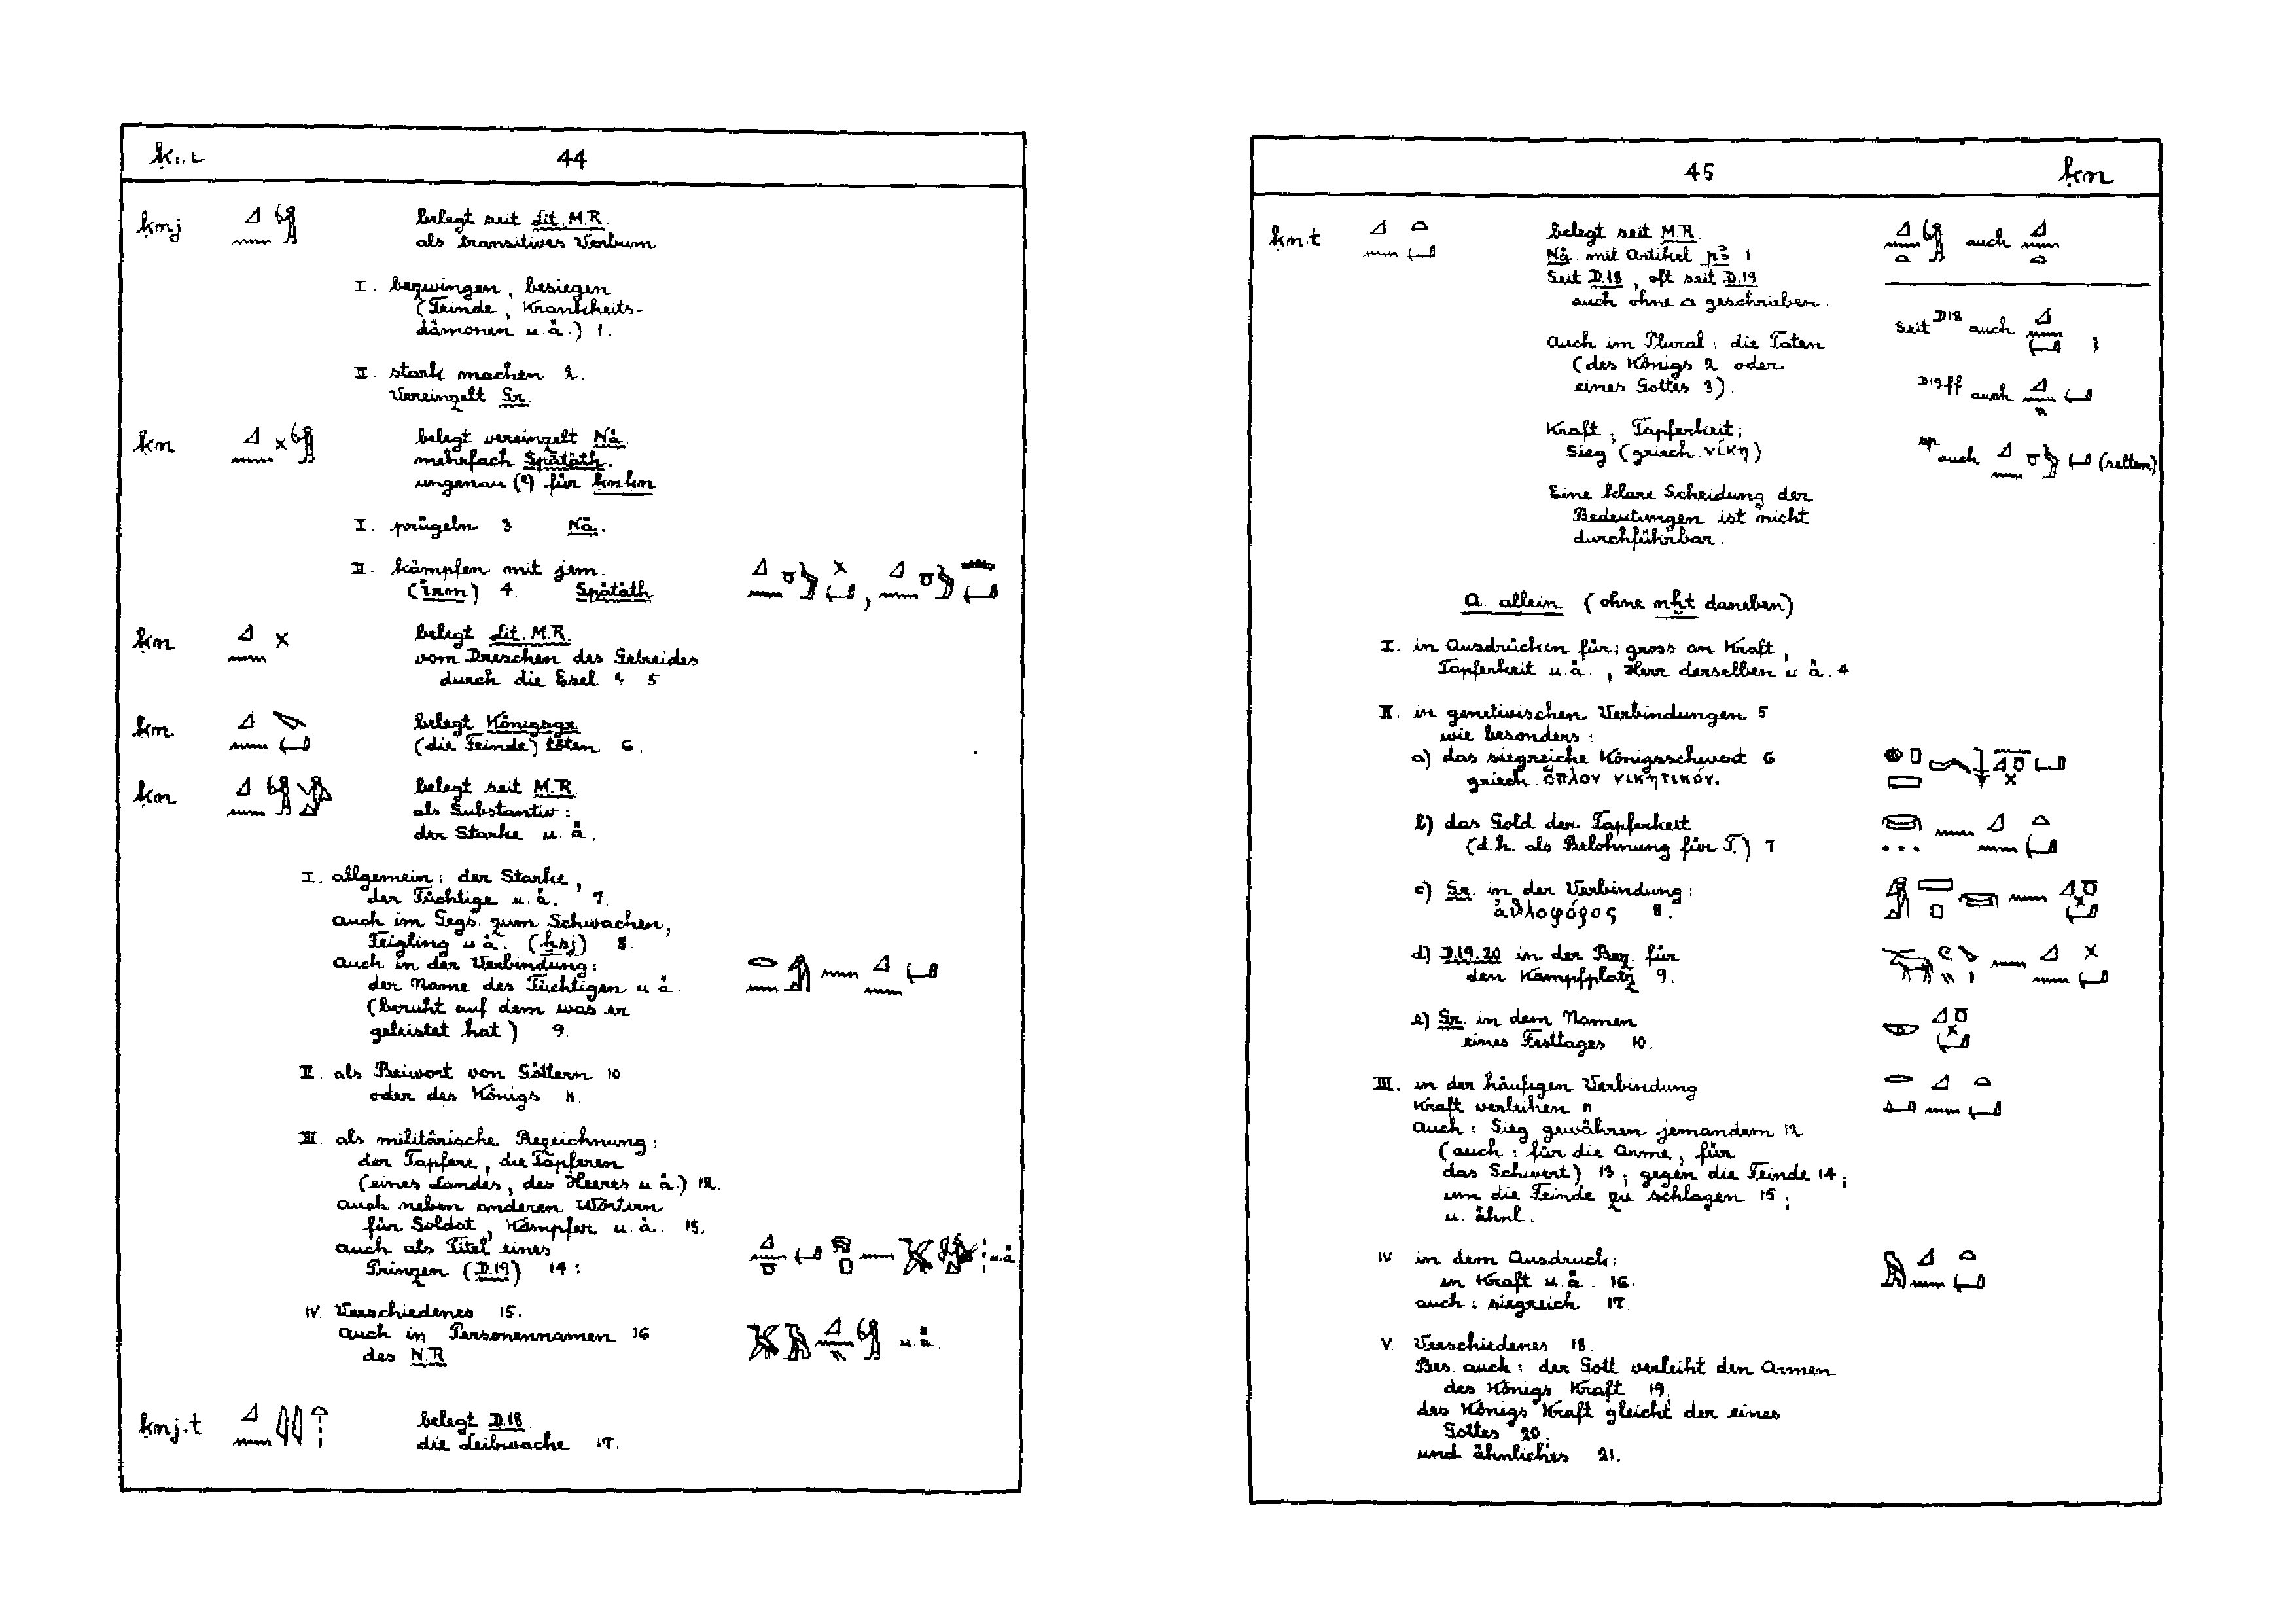 ḳn 44
ḳnj belegt seit Lit. M.R.
als transitives Verbum
I. bezwingen, besiegen
(Feinde, Krankheits-
dämonen u.ä.) 1.
II. stark machen 2.
Vereinzelt Gr.
ḳn belegt vereinzelt Nä.
mehrfach Spätäth.
ungenau (?) für ḳnḳn
I. prügeln 3 Nä.
II. kämpfen mit jem.
(irm) 4. Spätäth
ḳn belegt Lit. M.R.
vom Dreschen des Getreides
durch die Esel 5
ḳn belegt Königsgr.
(die Feinde) töten 6.
ḳn belegt seit M.R.
als Substantiv:
der Starke u. ä.
I. allgemein: der Starke,
der Tüchtige u.ä. 7.
auch im Gegs. zum Schwachen,
Feigling u. ä. (ẖsj) 8.
auch in der Verbindung:
der Name des Tüchtigen u. ä.
(beruht auf dem was er
geleistet hat) 9.
II. als Beiwort von Göttern 10
oder des Königs 11.
III. als militärische Bezeichnung:
der Tapfere, die Tapferen
(eines Landes, des Heeres u. ä.) 12.
auch neben anderen Wörtern
für Soldat, Kämpfer u. ä. 13.
auch als Titel eines
Prinzen (D.19) 14: u.ä
IV. Verschiedenes 15.
auch in Personennamen 16 u.ä.
des N.R.
ḳnj.t belegt D.18.
die Leibwache 17.
45 ḳn
ḳn.t belegt seit M.R. auch
Nä. mit Artikel pꜣ 1
Seit D.18, oft seit D.19
auch ohne ⌓ geschrieben.
Seit D18 auch ;
Auch im Plural: die Taten
(des Königs 2 oder
eines Gottes 3).
D19ff auch
Kraft; Tapferkeit;
Sieg (griech. νίκη)
sp auch (selten)
Eine klare Scheidung der
Bedeutungen ist nicht
durchführbar.
A. allein (ohne nḫt daneben)
I. in Ausdrücken für: gross an Kraft,
Tapferkeit u.ä., Herr derselben u. ä. 4
II. in genetivischen Verbindungen 5
wie besonders:
a) das siegreiche Königsschwert 6
griech. ὅπλον νικητικόν.
b) das Gold der Tapferkeit
(d.h. als Belohnung für T.) 7
c) Gr. in der Verbindung:
ἀθλοφόρος 8.
d) D.19.20 in der Bez. für
den Kampfplatz 9.
e) Gr. in dem Namen
eines Festtages 10.
III. in der häufigen Verbindung
Kraft verleihen 11
auch: Sieg gewähren jemandem 12
(auch: für die Arme, für
das Schwert) 13; gegen die Feinde 14;
um die Feinde zu schlagen 15;
u. ähnl.
IV in dem Ausdruck:
in Kraft u.ä. 16.
auch: siegreich 17.
V. Verschiedenes 18.
Bes. auch: der Gott verleiht den Armen
des Königs Kraft 19.
des Königs Kraft gleicht der eines
Gottes 20.
und ähnliches 21.